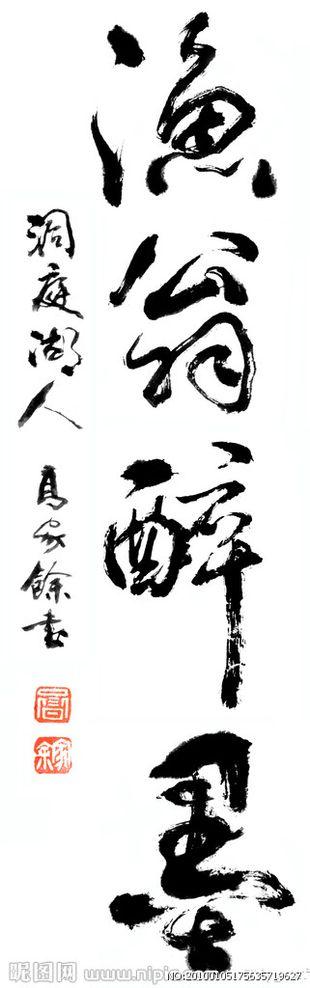 漁翁醉墨
洞庭湖人 易家餘書
昵图网 www.nipi
NO:20100105175635719627